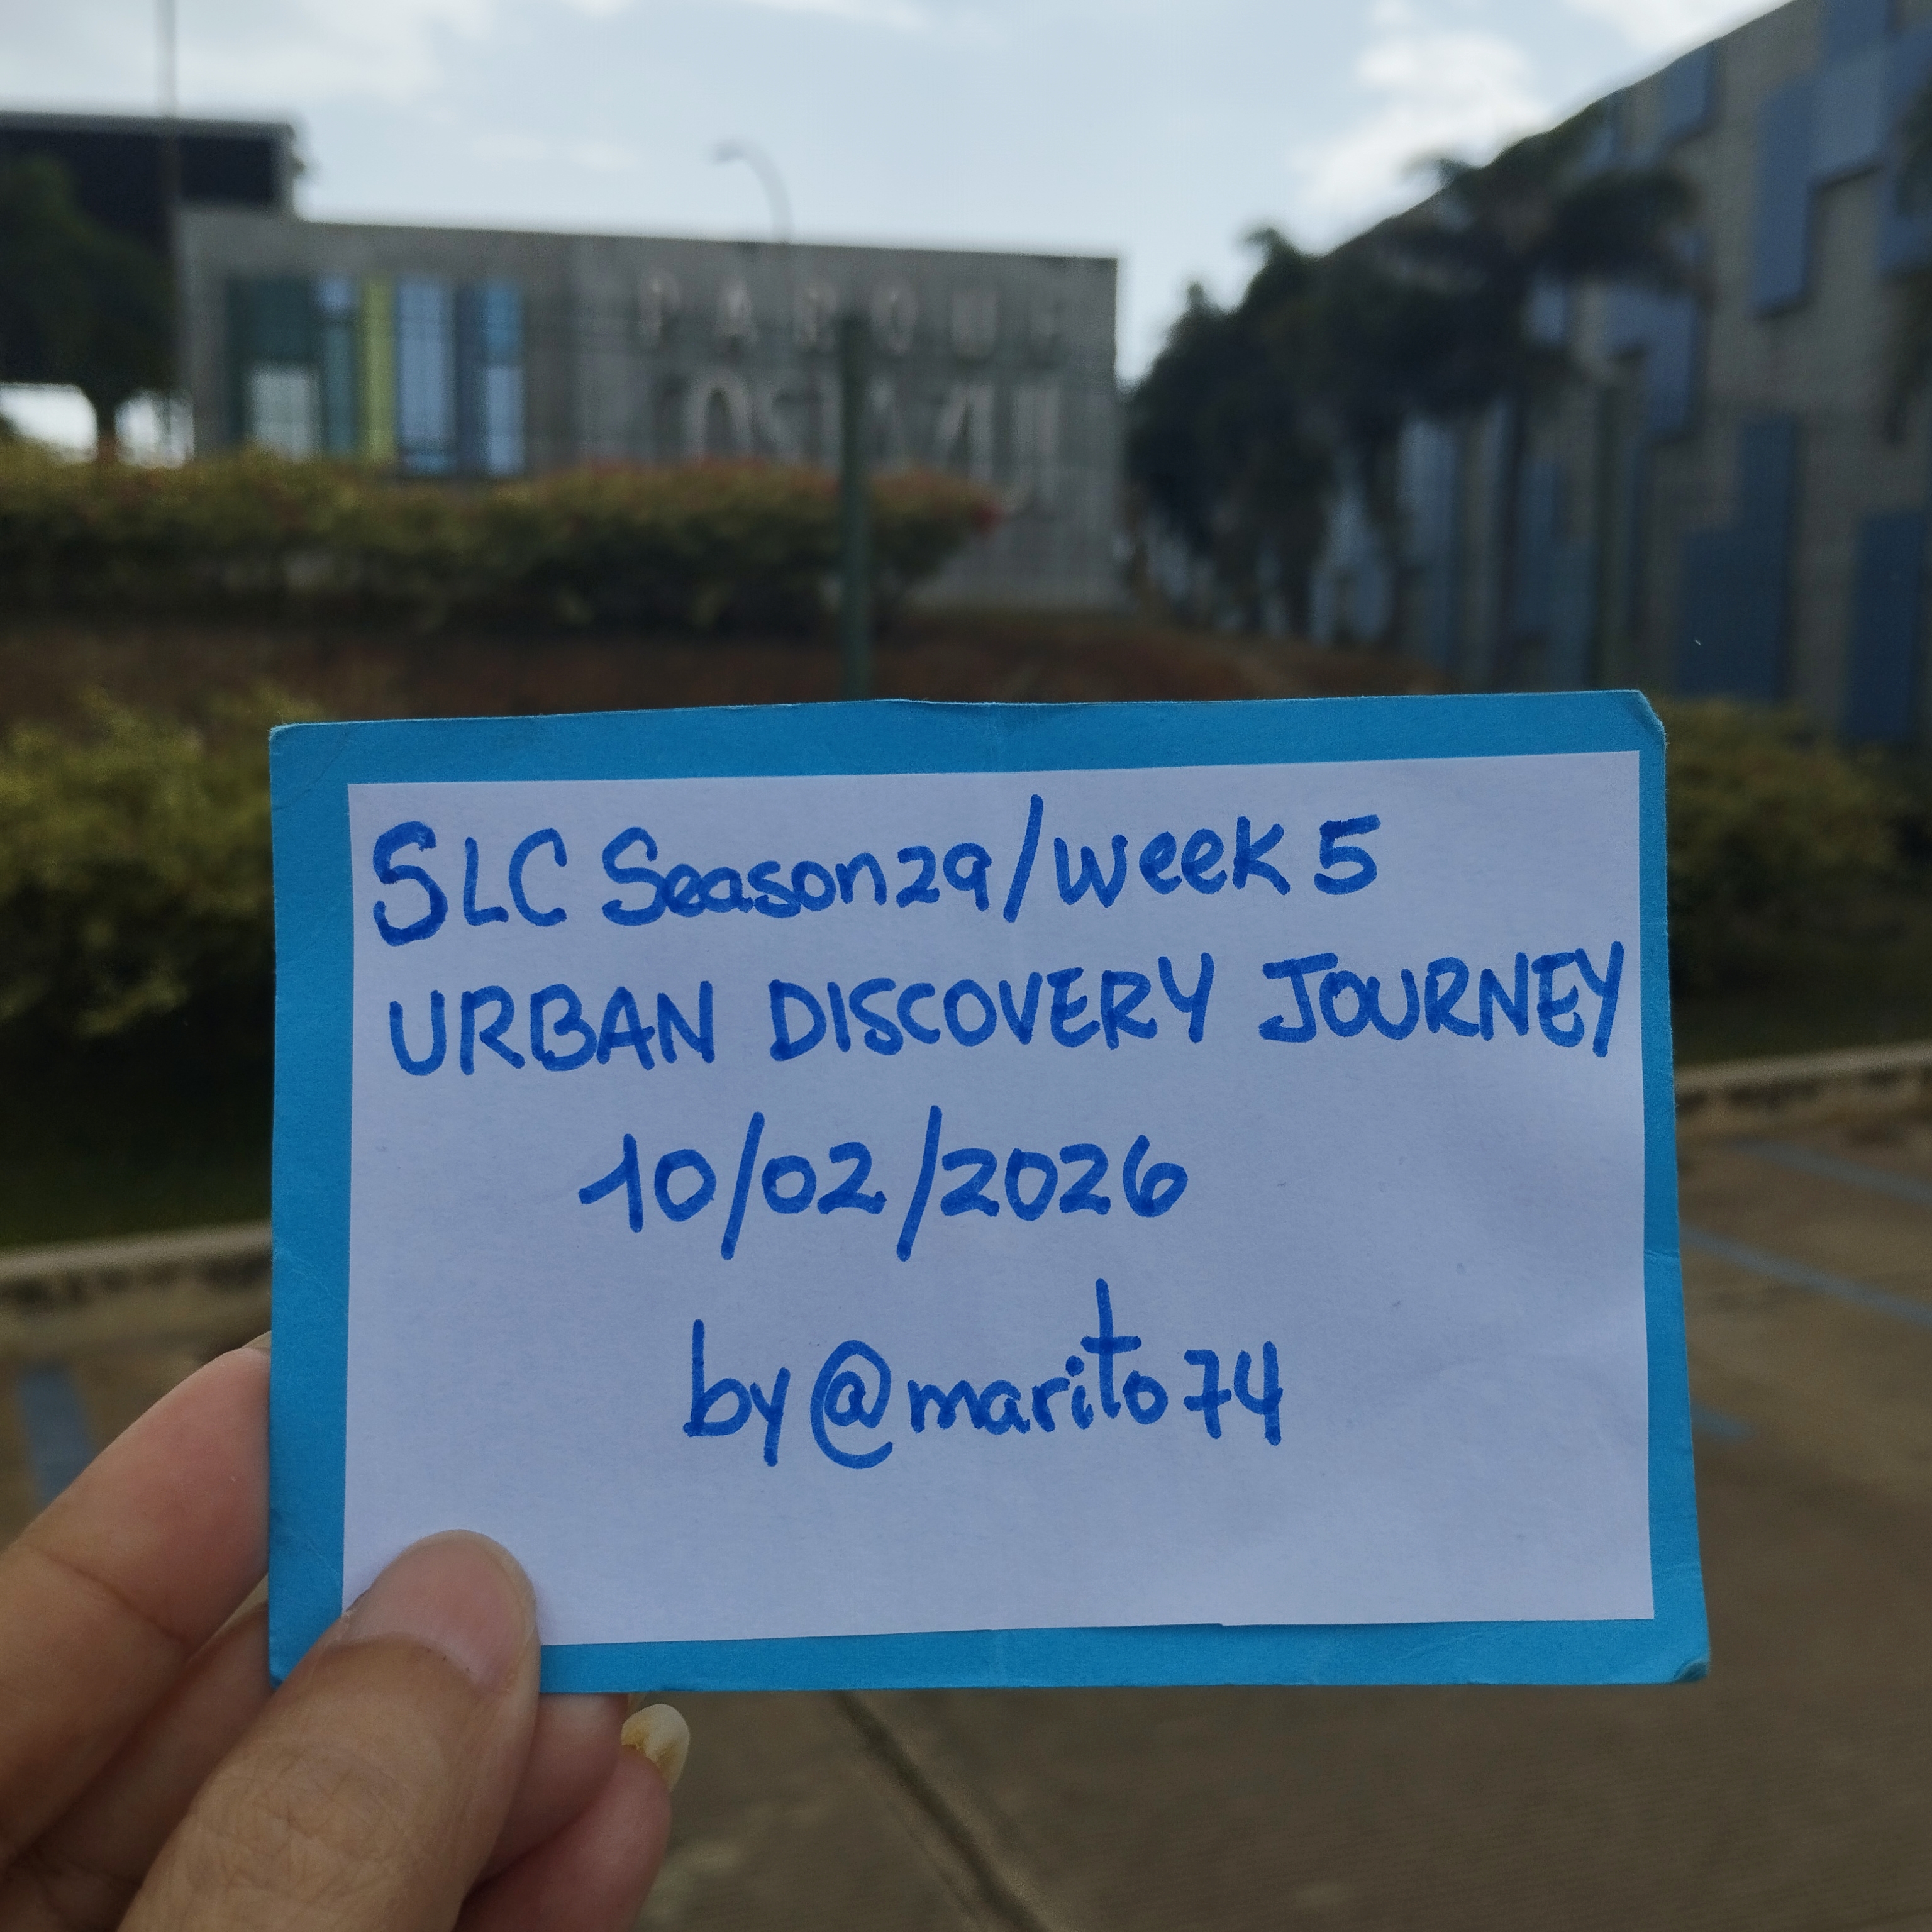 PARQUE
SLC Season29/Week 5
URBAN DISCOVERY JOURNEY
10/02/2026
by @marito74